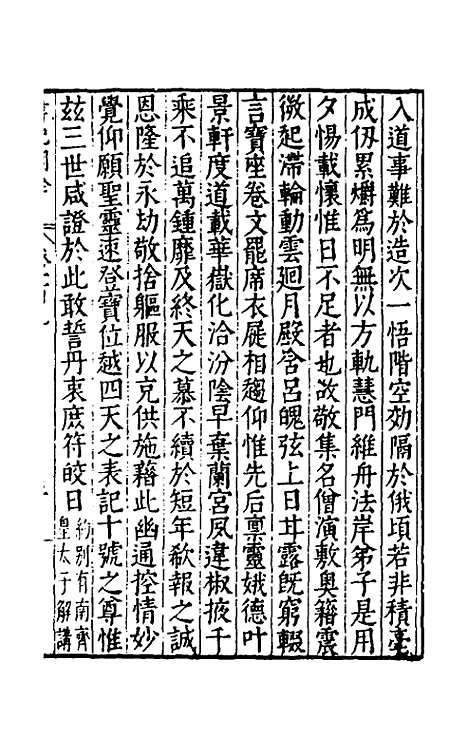 入道事難於造次一悟階空効隔於俄頃若非積毫
成仭累爝爲明無以方軌慧門維舟法岸弟子是用
夕惕載懷惟日不足者也故敬集名僧演敷奥籍震
微起滯輪動雲廻月殿含呂魄弦上日甘露旣窮輟
言寶座卷文罷席衣屣相趨仰惟先后禀靈娥德叶
景軒度道載華嶽化洽汾陰早棄蘭宮夙違椒掖千
乘不追萬鍾靡及終天之慕不續於短年欲報之誠
恩隆於永劫敬捨軀服以充供施藉此幽通控情妙
覺仰願聖靈速登寶位越四天之表記十號之尊惟
兹三世咸證於此敢誓丹衷庶符皎日
約別有南齊
皇太子解講